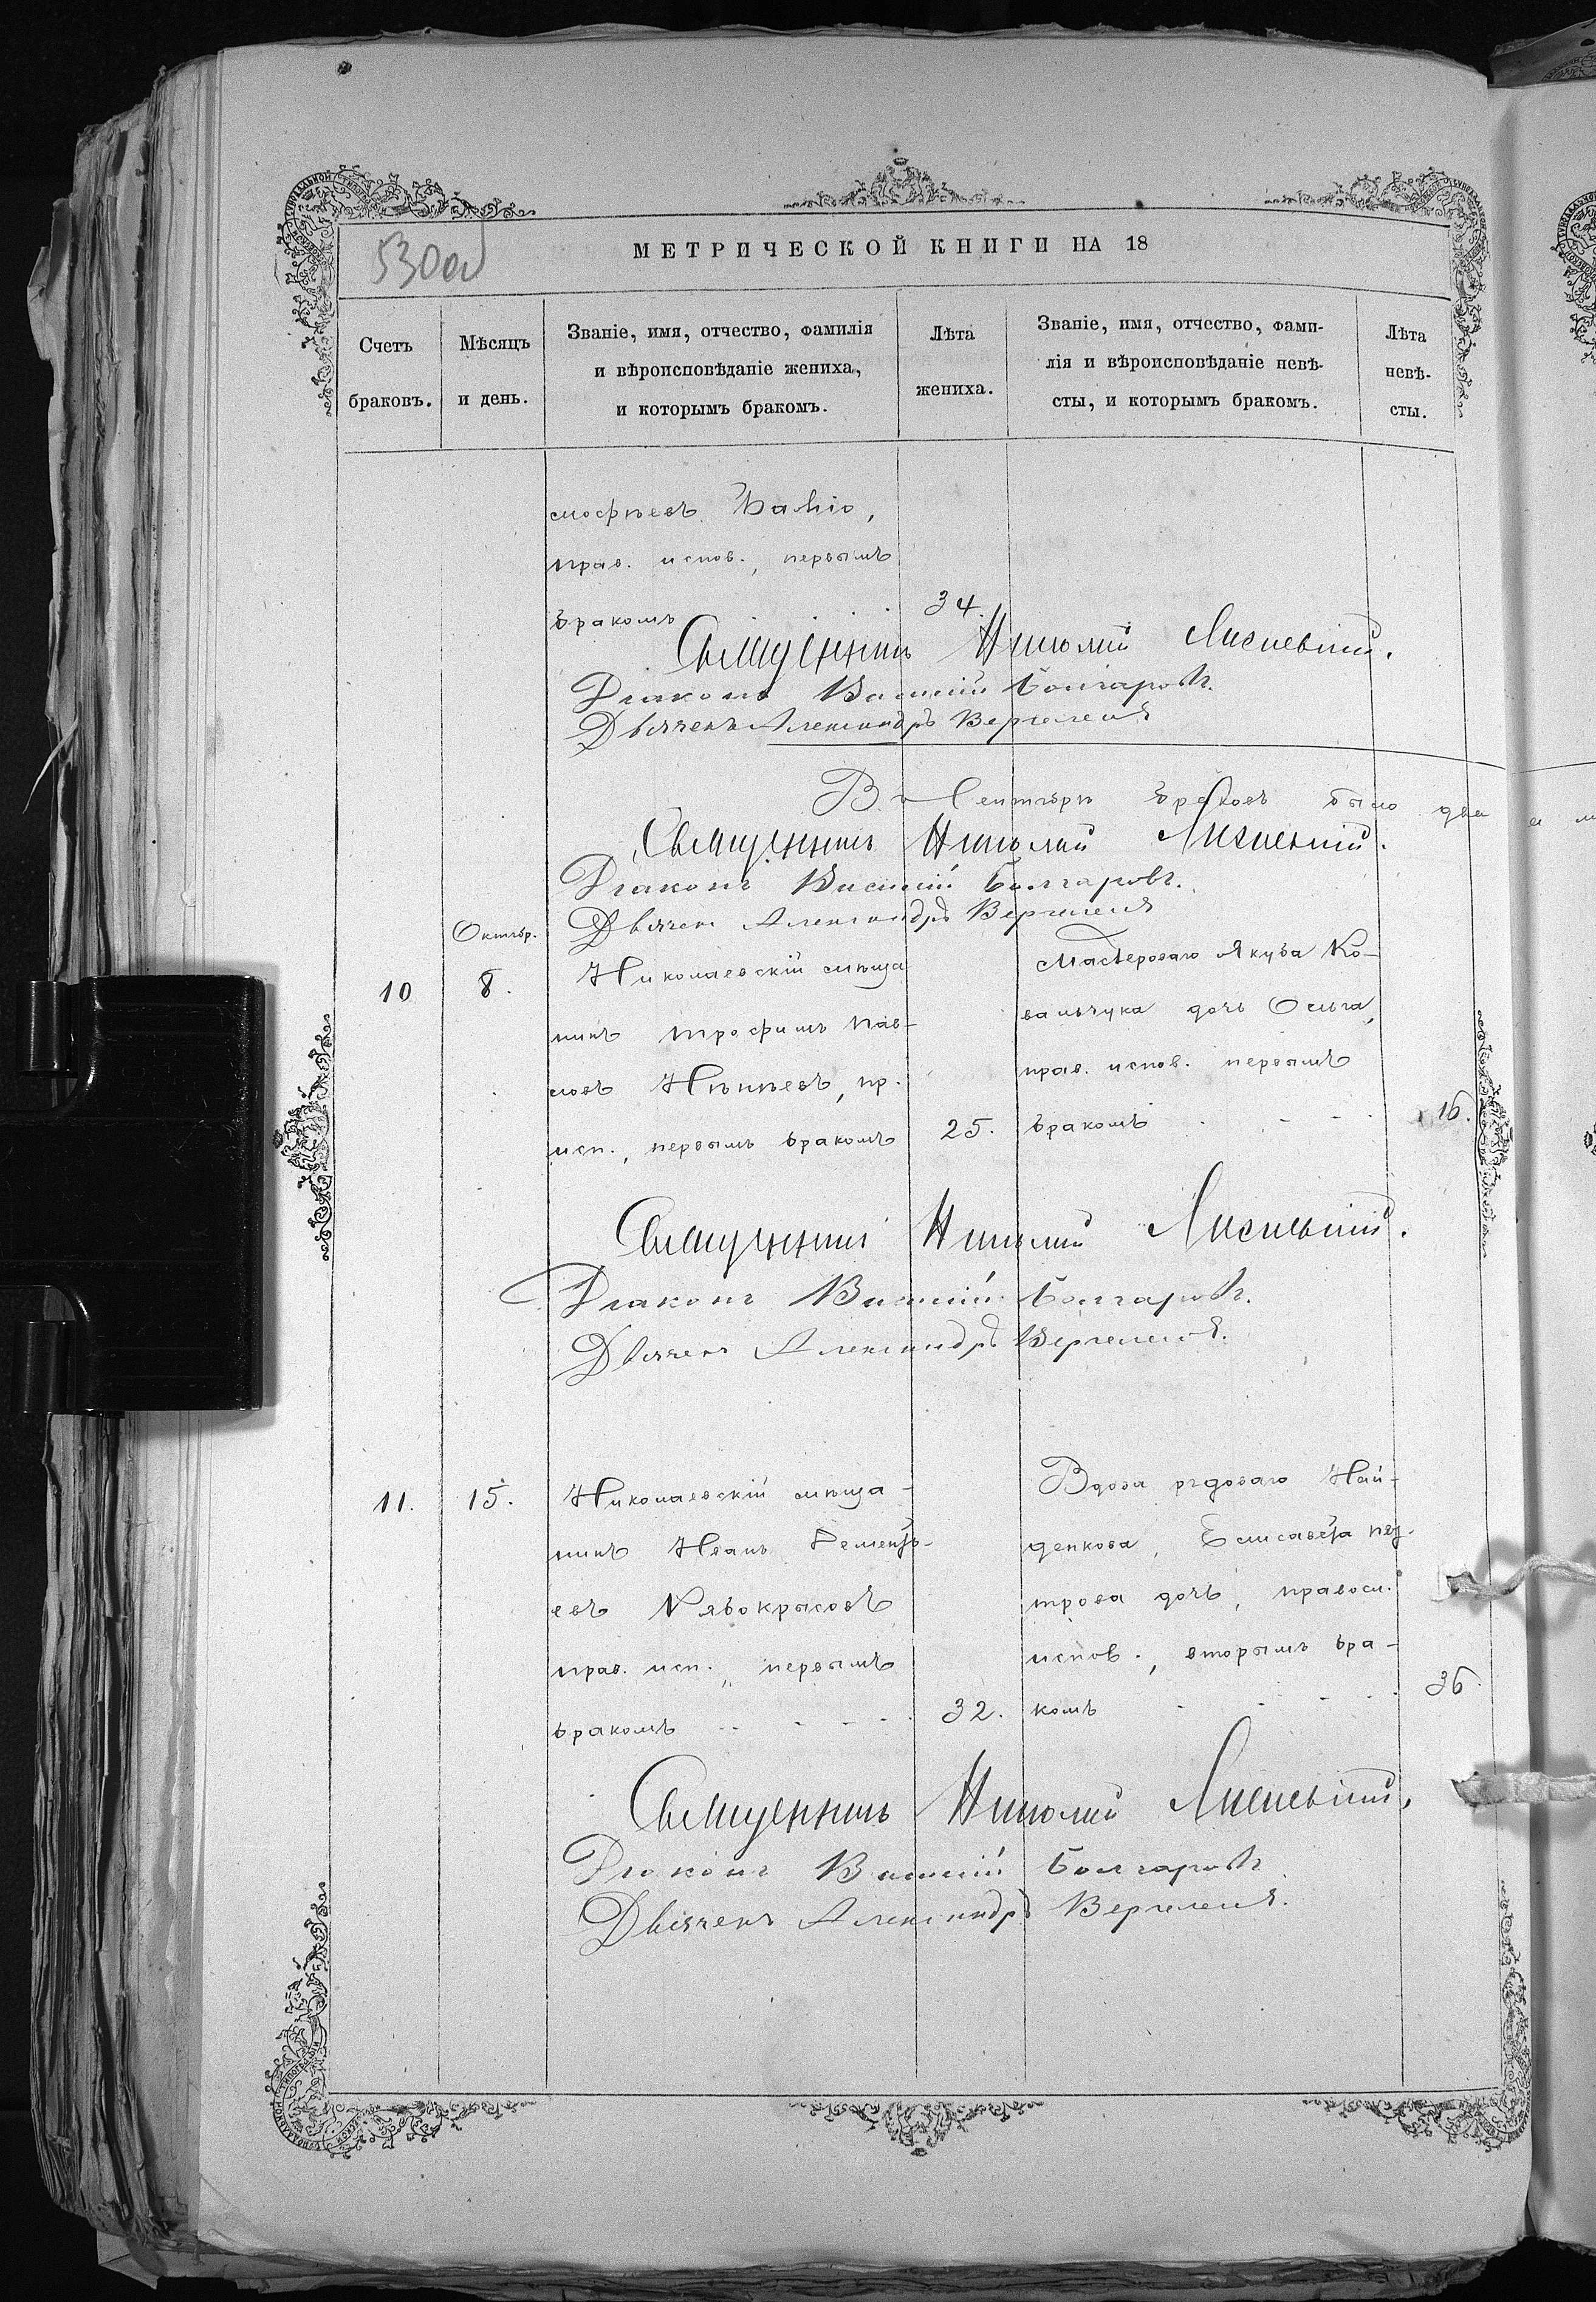 530об
МЕТРИЧЕСКОЙ КНИГИ НА 18
Счетъ браковъ.
Мѣсяцъ и день.
Званіе, имя, отчество, фамилія
и вѣроисповѣданіе жениха,
и которымъ бракомъ.
Лѣта жениха.
Званіе, имя, отчество, фами-
лія и вѣроисповѣданіе невѣ-
сты, и которымъ бракомъ.
Лѣта невѣ-
сты.
прав. испов., первымъ
бракомъ
34.
Священникъ Николай Лисневскій.
Діаконъ Василій Болгаровъ.
Дьячекъ Александръ
Въ Сентябрѣ браковъ было два
Священникъ Николай Лисневскій.
Діаконъ Василій Болгаровъ.
Дьячекъ Александръ
Октябр.
10
8.
Николаевскій мѣща
нинъ Трофимъ Пав-
ловъ пр.
исп., первымъ бракомъ
25.
Мастероваго Якуба Ко-
вальчука дочь Ольга,
прав. испов. первымъ
бракомъ
16.
Священникъ Николай Лисневскій.
Діаконъ Василій Болгаровъ.
Дьячекъ Александръ
11.
15.
Николаевскій мѣща-
нинъ Иванъ Дементь-
евъ Рябокрысовъ
прав. исп., первымъ
бракомъ
32.
Вдова рядоваго Най-
денкова, Елисавета Пет-
трова дочь, правосл.
испов., вторымъ бра-
комъ
36.
Священникъ Николай Лисневскій.
Діаконъ Василій Болгаровъ
Дьячекъ Александръ